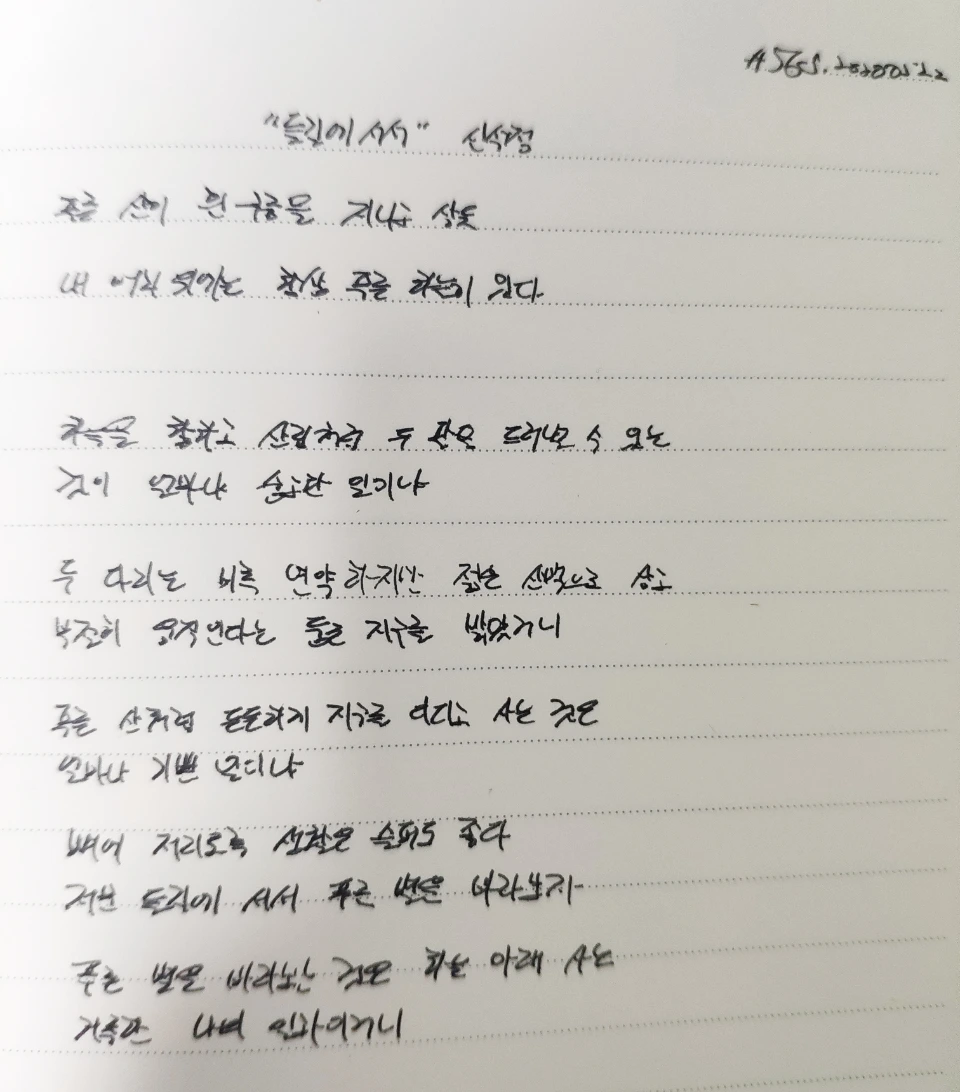 "들길에 서서" 신석정
푸른 산이 흰 구름을 지니고 살듯
내 머리 위에는 항상 푸른 하늘이 있다
하늘을 향하고 산림처럼 두 팔을 드러낼 수 있는
것이 얼마나 숭고한 일이냐
두 다리는 비록 연약하지만 젊은 산맥으로 삼고
부절히 움직인다는 둥근 지구를 밟았거니
푸른 산처럼 든든하게 지구를 디디고 사는 것은
얼마나 기쁜 일이냐
뼈에 저리도록 생활은 슬퍼도 좋다
저문 들길에 서서 푸른 별을 바라보자
푸른 별을 바라보는 것은 하늘 아래 사는
거룩한 나의 일과이거니